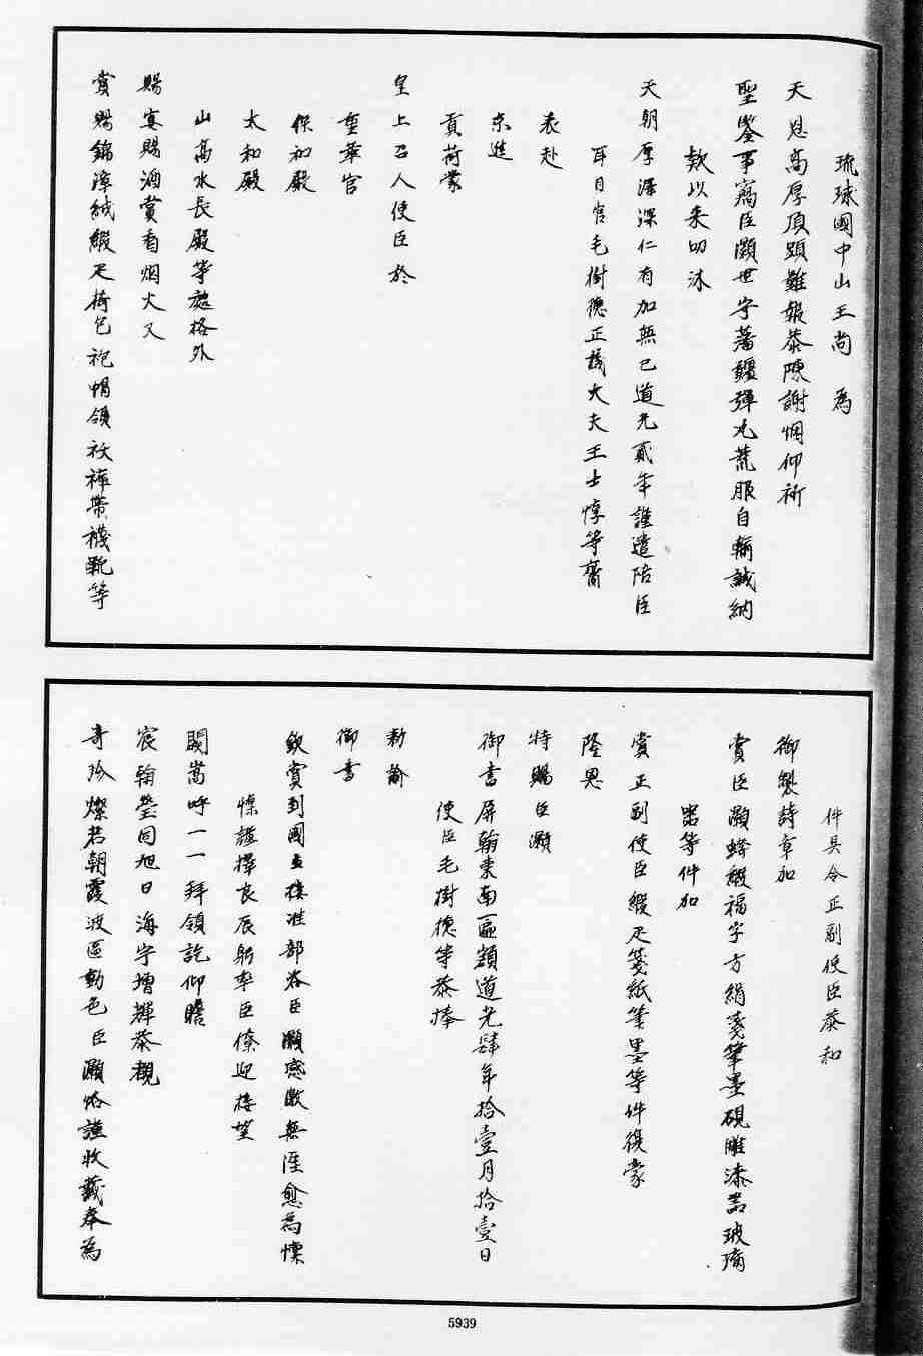 琉球國中山王尚　為
天恩高厚頂踵難報恭陳謝悃仰祈
聖鑒事竊臣灝世守藩疆彈丸荒服自輸誠納
欵以来叨沐
天朝厚澤深仁有加無已道光貳年謹遣陪臣
耳目官毛樹德正議大夫王士惇等齎
表赴
京進
貢荷蒙
皇上召入使臣於
重華宮
保和殿
太和殿
山高水長殿等處格外
賜宴賜酒賞看烟火又
賞賜錦漳絨緞疋荷包袍帽領衣褲帶襪靴等
件具令正副使臣恭和
御製詩章加
賞臣灝蟒緞福字方絹箋筆墨硯雕漆器玻璃
器等件加
賞正副使臣緞疋箋紙筆墨等件復蒙
隆恩
特賜臣灝
御書屏翰東南匾額道光肆年拾壹月拾壹日
使臣毛樹德等恭捧
勅諭
御書
欽賞到國並接准部咨臣灝感激無涯愈為慄
慄謹擇良辰躬率臣僚迎接望
闕嵩呼一一拜領訖仰瞻
宸翰瑩同旭日海宇增輝恭覩
奇珍燦若朝霞波區動色臣灝恪謹收藏奉為
5939